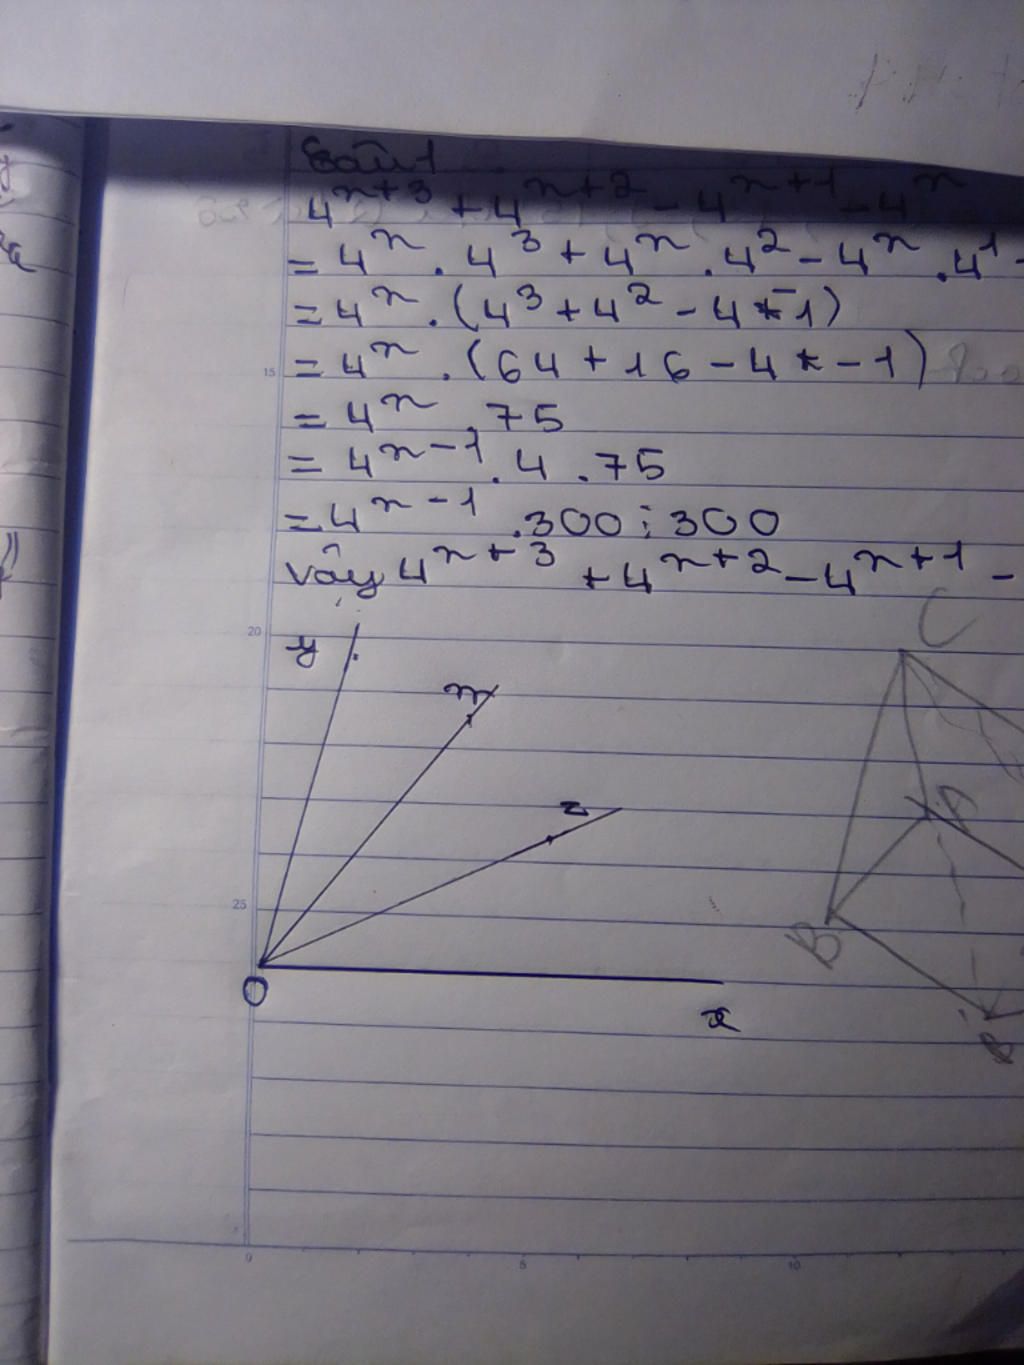 Bài 1
4^{n+3} + 4^{n+2} - 4^{n+1} - 4^n
= 4^n . 4^3 + 4^n . 4^2 - 4^n . 4^1 -
= 4^n . (4^3 + 4^2 - 4 - 1)
= 4^n . (64 + 16 - 4 - 1)
15
= 4^n . 75
= 4^{n-1} . 4 . 75
= 4^{n-1} . 300 ⋮ 300
Vậy 4^{n+3} + 4^{n+2} - 4^{n+1} -
20
y
m
z
25
O
x
C
A
B
B
0 5 10